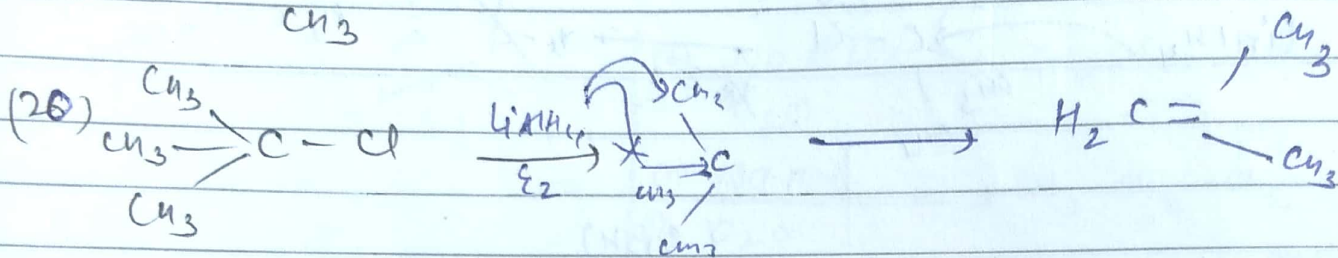 CH3
(20) CH3 CH3 CH3 C - Cl LiAlH4 E2 CH2 C CH3 CH3 H2C = CH3 CH3